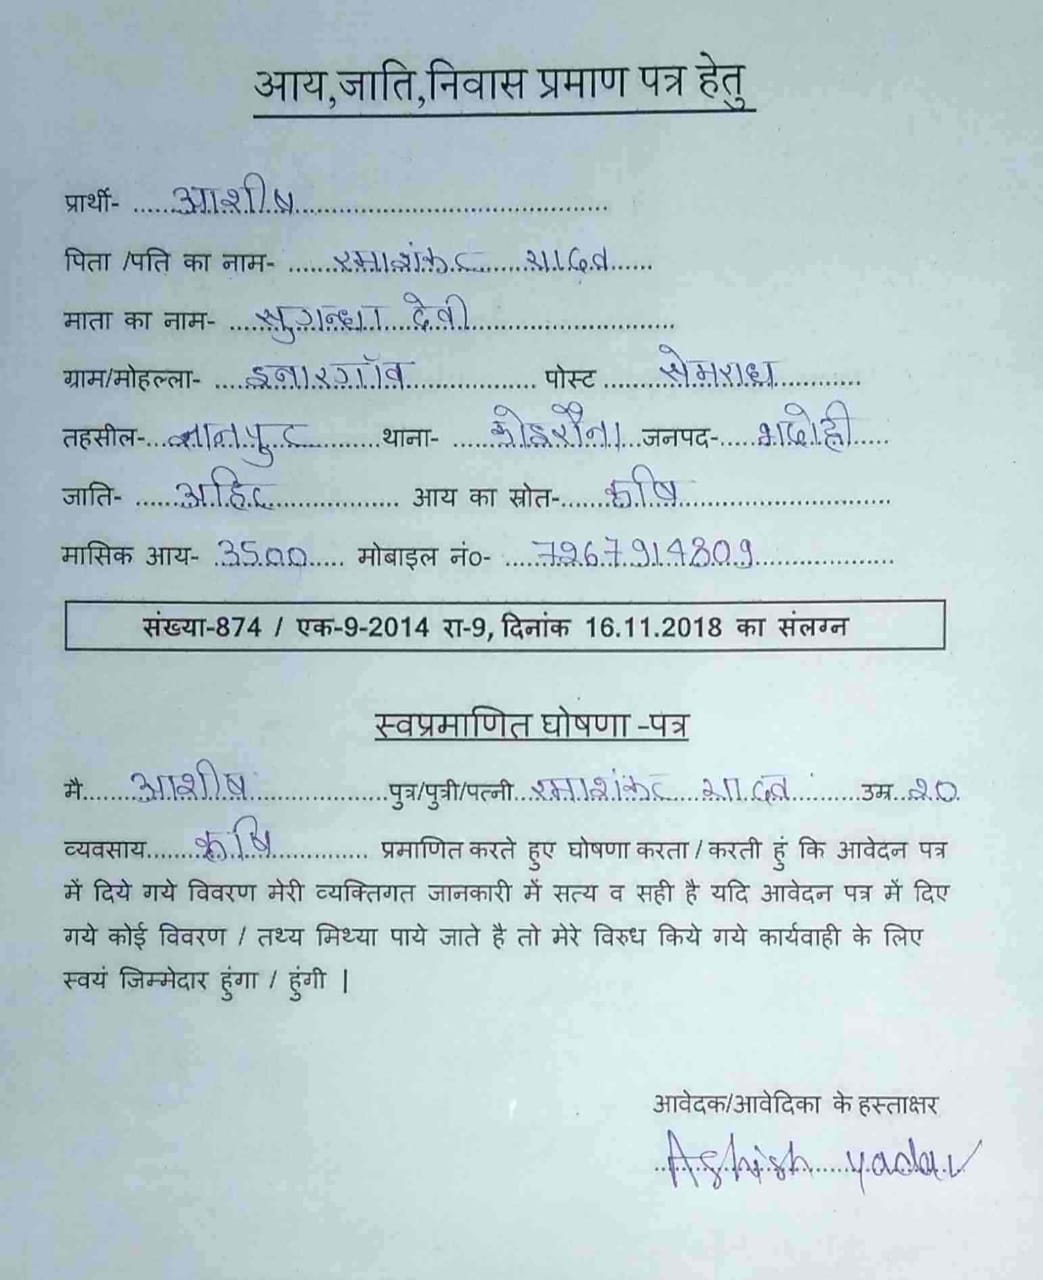 आय,जाति,निवास प्रमाण पत्र हेतु
प्रार्थी- ......आशीष..........................................
पिता /पति का नाम- .......रमाशंकर...... यादव......
माता का नाम- ....सुगन्धा...देवी..............................
ग्राम/मोहल्ला- .....इनारगॉव.................. पोस्ट ........सेमराध............
तहसील-...ज्ञानपुर...........थाना- .....कोइरौना...जनपद-.....भदोही.....
जाति- ......अहिर................... आय का स्रोत-......कृषि.............................
मासिक आय- .3500..... मोबाइल नं०- .....7267914809...................
संख्या-874 / एक-9-2014 रा-9, दिनांक 16.11.2018 का संलग्न
स्वप्रमाणित घोषणा -पत्र
मै.......आशीष...................पुत्र/पुत्री/पत्नी...रमाशंकर....यादव.........उम्र...20.
व्यवसाय.......कृषि.............. प्रमाणित करते हुए घोषणा करता / करती हुं कि आवेदन पत्र
में दिये गये विवरण मेरी व्यक्तिगत जानकारी में सत्य व सही है यदि आवेदन पत्र में दिए
गये कोई विवरण / तथ्य मिथ्या पाये जाते है तो मेरे विरुध किये गये कार्यवाही के लिए
स्वयं जिम्मेदार हुंगा / हुंगी |
आवेदक/आवेदिका के हस्ताक्षर
Ashish yadav